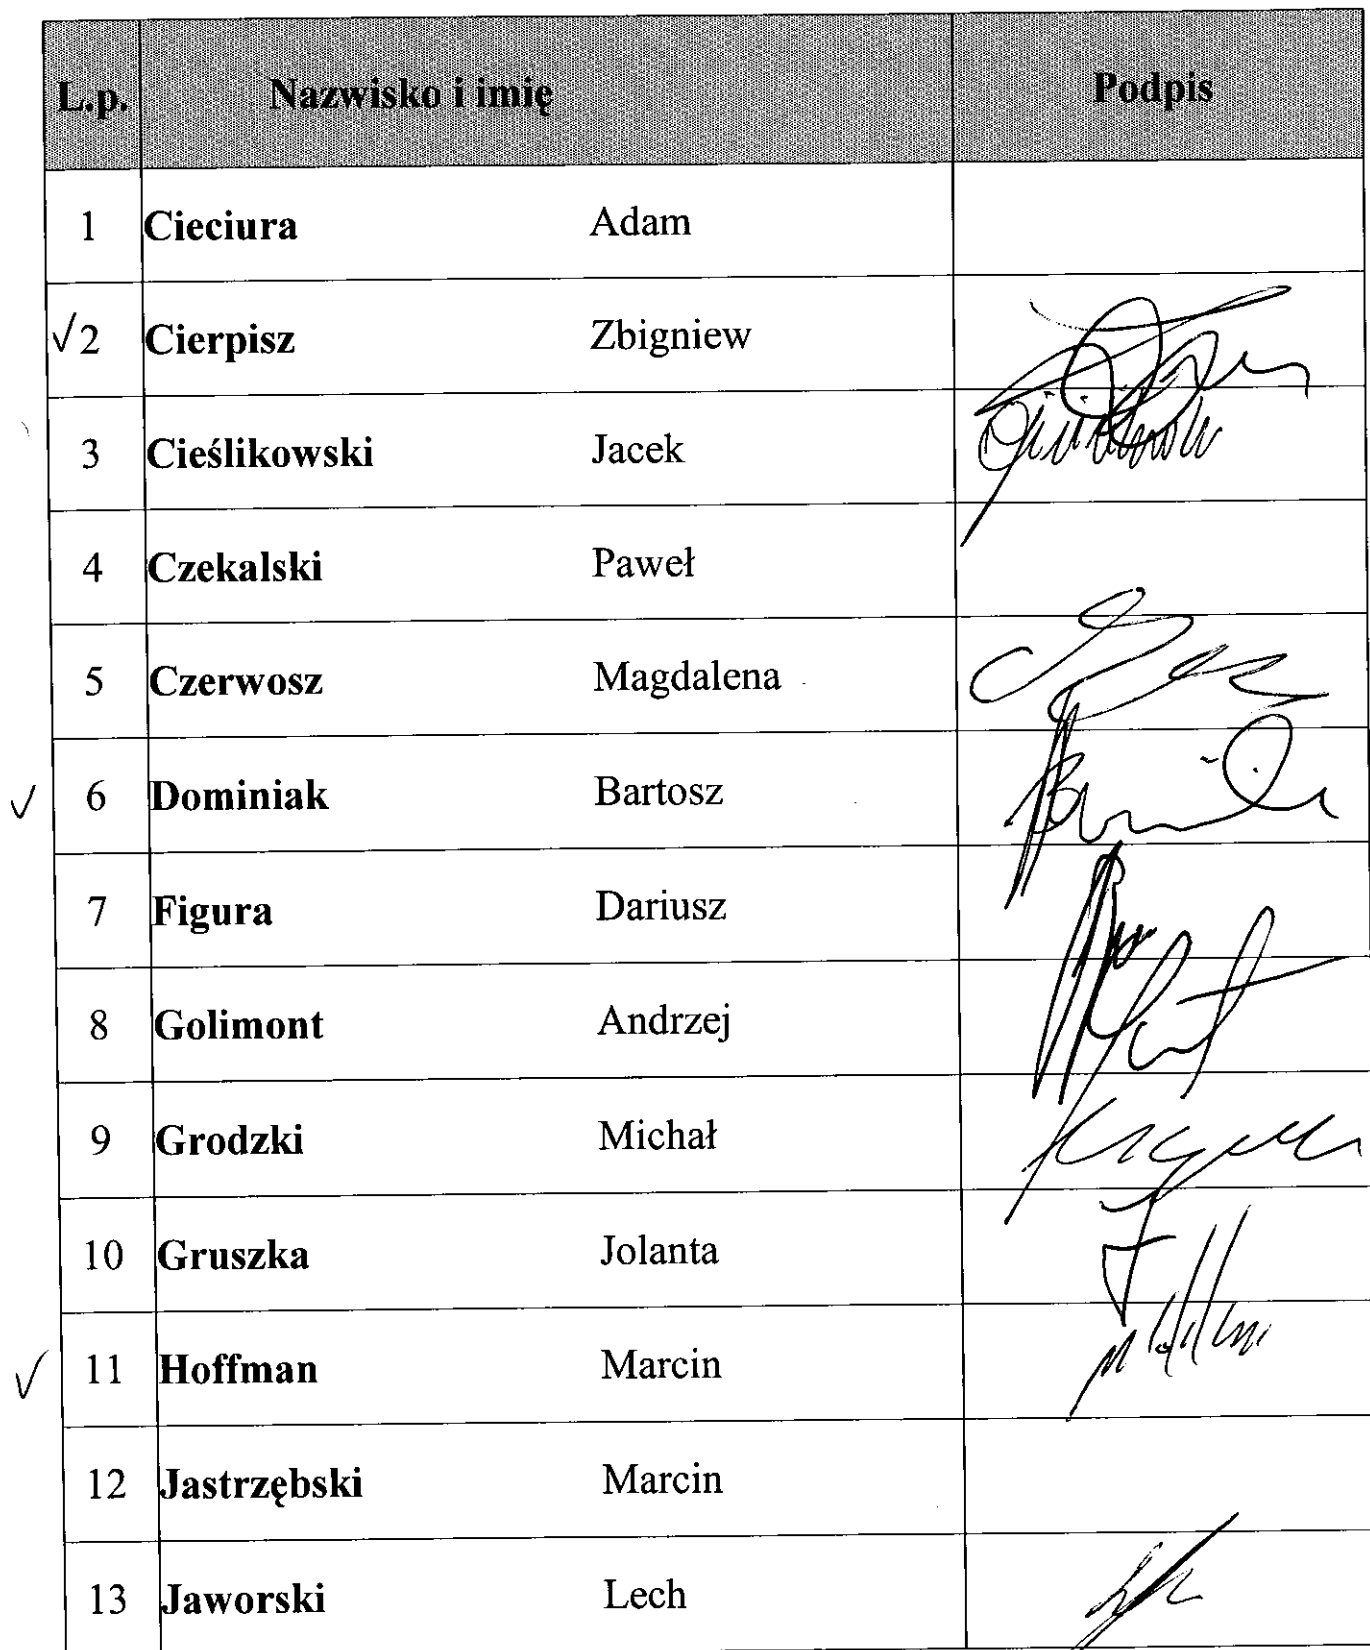 L.p. Nazwisko i imię Podpis
1 Cieciura Adam
√2 Cierpisz Zbigniew
3 Cieślikowski Jacek
4 Czekalski Paweł
5 Czerwosz Magdalena
√ 6 Dominiak Bartosz
7 Figura Dariusz
8 Golimont Andrzej
9 Grodzki Michał
10 Gruszka Jolanta
√ 11 Hoffman Marcin
12 Jastrzębski Marcin
13 Jaworski Lech